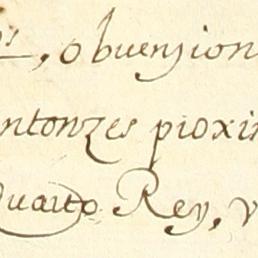 , obuenzion
entonzes proxi
Quarto Rey, v